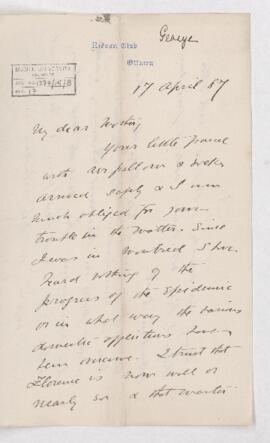 George
Rideau Club
Ottawa
17 April 87
My dear Mother,
Your little parcel
with air pillow &
arrived safely & I am
much obliged for your
trouble in the matter. Since
I was in Montreal I have
heard nothing of the
progress of the Epidemic
or in what way the various
domestic
been overcome. I trust that
Florence is now well or
nearly so & that